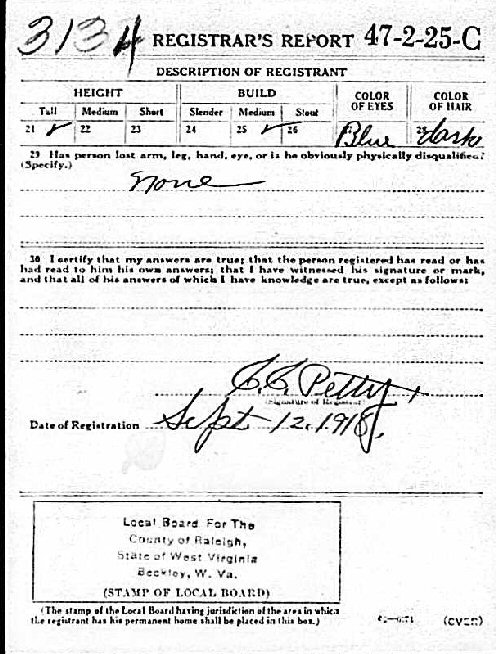 3134 REGISTRAR'S REPORT 47-2-25-C
DESCRIPTION OF REGISTRANT
HEIGHT BUILD COLOR OF EYES COLOR OF HAIR
Tall Medium Short Slender Medium Stout
21 ✓ 22 23 24 25 ✓ 26 Blue 28 dark
29 Has person lost arm, leg, hand, eye, or is he obviously physically disqualified?
(Specify.)
none
30 I certify that my answers are true; that the person registered has read or has
had read to him his own answers; that I have witnessed his signature or mark,
and that all of his answers of which I have knowledge are true, except as follows:
Petty
(Signature of Registrar)
Date of Registration Sept 12, 1918.
Local Board For The
County of Raleigh,
State of West Virginia
Beckley, W. Va.
(STAMP OF LOCAL BOARD)
(The stamp of the Local Board having jurisdiction of the area in which
the registrant has his permanent home shall be placed in this box.)
(OVER)